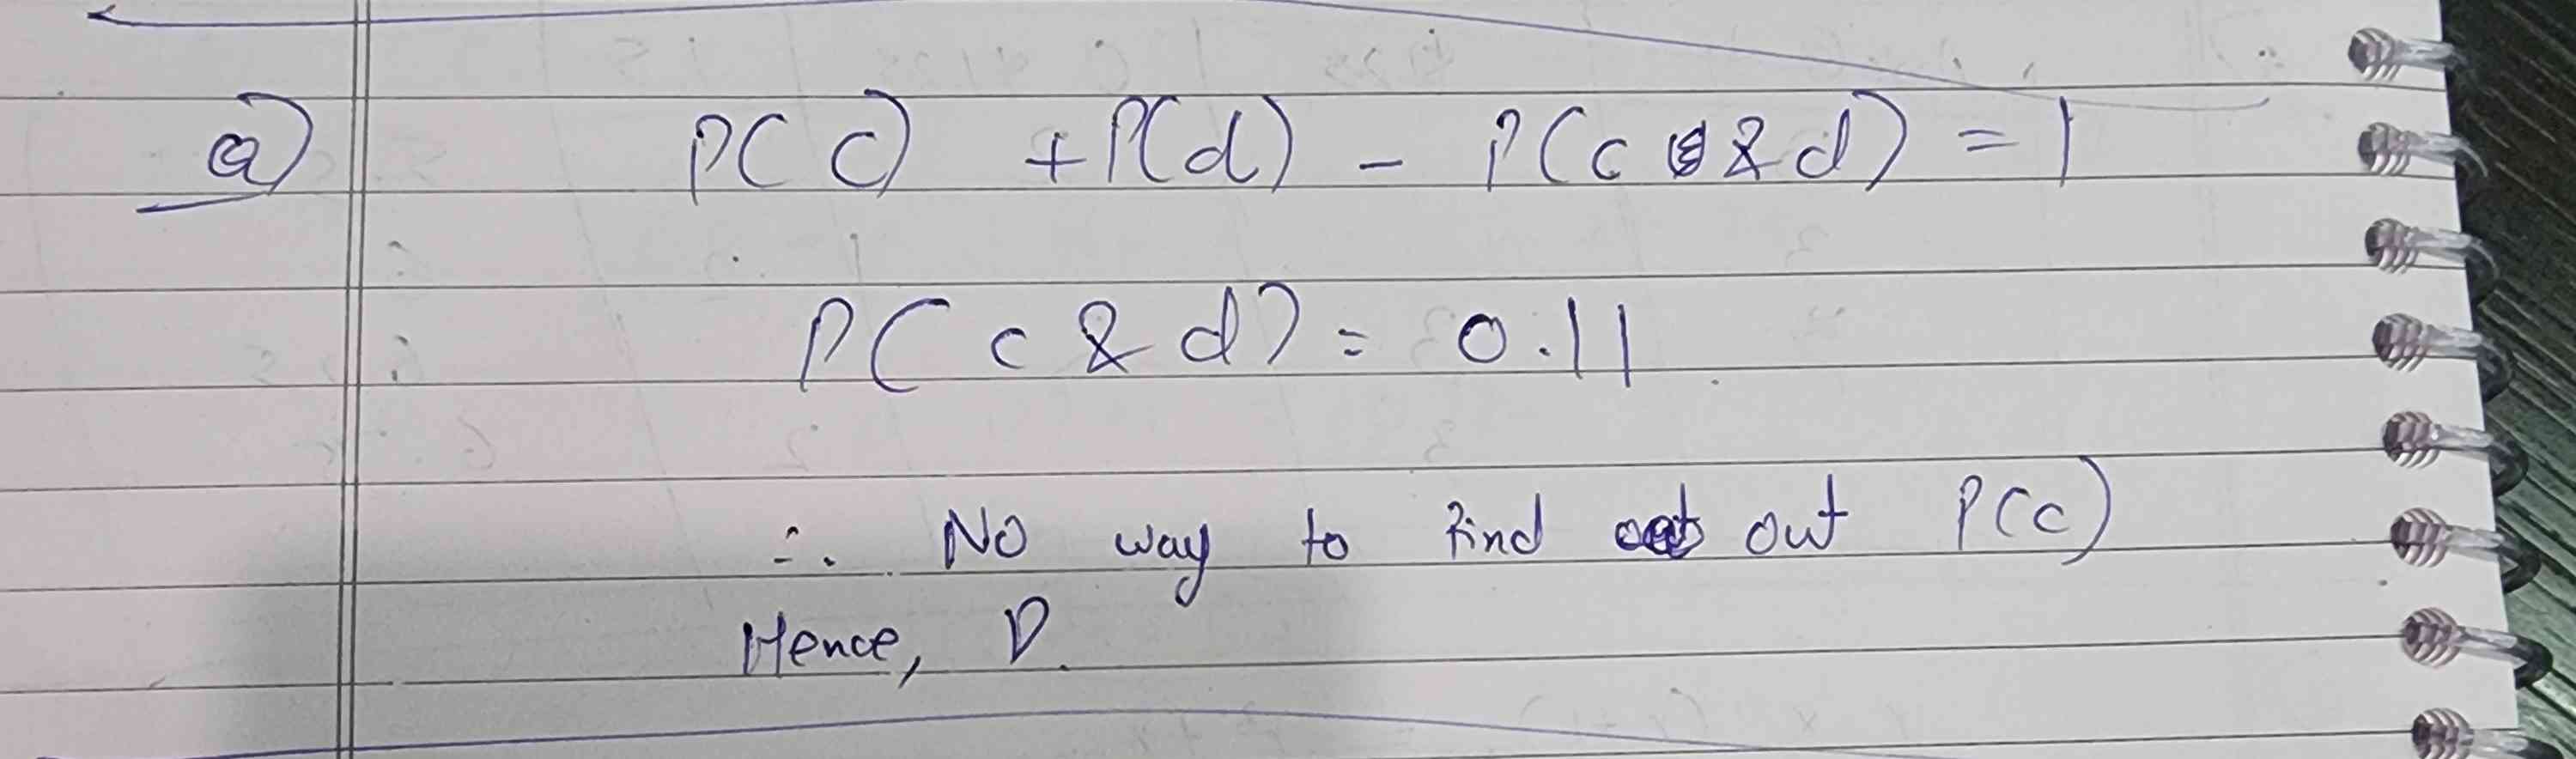 a) P(c) + P(d) - P(c & d) = 1
P(c & d) = 0.11
∴ No way to find out P(c)
Hence, D.